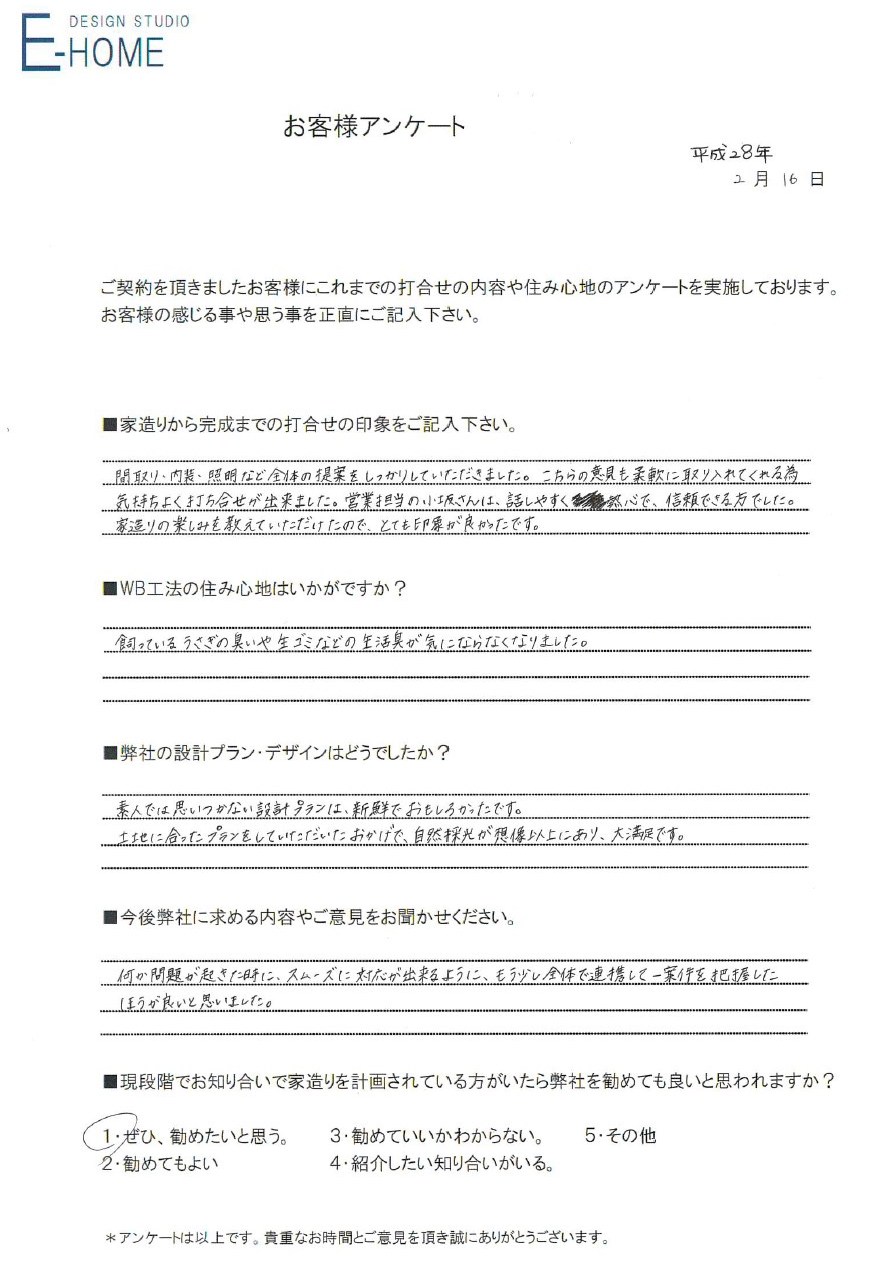 DESIGN STUDIO
E-HOME
お客様アンケート
平成28年
2月16日
ご契約を頂きましたお客様にこれまでの打合せの内容や住み心地のアンケートを実施しております。
お客様の感じる事や思う事を正直にご記入下さい。
■家造りから完成までの打合せの印象をご記入下さい。
間取り・内装・照明など全体の提案をしっかりしていただきました。こちらの意見も柔軟に取り入れてくれる為
気持ちよく打ち合せが出来ました。営業担当の小坂さんは、話しやすく熱心で、信頼できる方でした。
家造りの楽しみを教えていただけたので、とても印象が良かったです。
■WB工法の住み心地はいかがですか？
飼っているうさぎの臭いや生ゴミなどの生活臭が気にならなくなりました。
■弊社の設計プラン・デザインはどうでしたか？
素人では思いつかない設計プランは、新鮮でおもしろかったです。
土地に合ったプランをしていただいたおかげで、自然採光が想像以上にあり、大満足です。
■今後弊社に求める内容やご意見をお聞かせください。
何か問題が起きた時に、スムーズに対応が出来るように、もう少し全体で連携して一案件を把握した
ほうが良いと思いました。
■現段階でお知り合いで家造りを計画されている方がいたら弊社を勧めても良いと思われますか？
1・ぜひ、勧めたいと思う。 3・勧めていいかわからない。 5・その他
2・勧めてもよい 4・紹介したい知り合いがいる。
＊アンケートは以上です。貴重なお時間とご意見を頂き誠にありがとうございます。